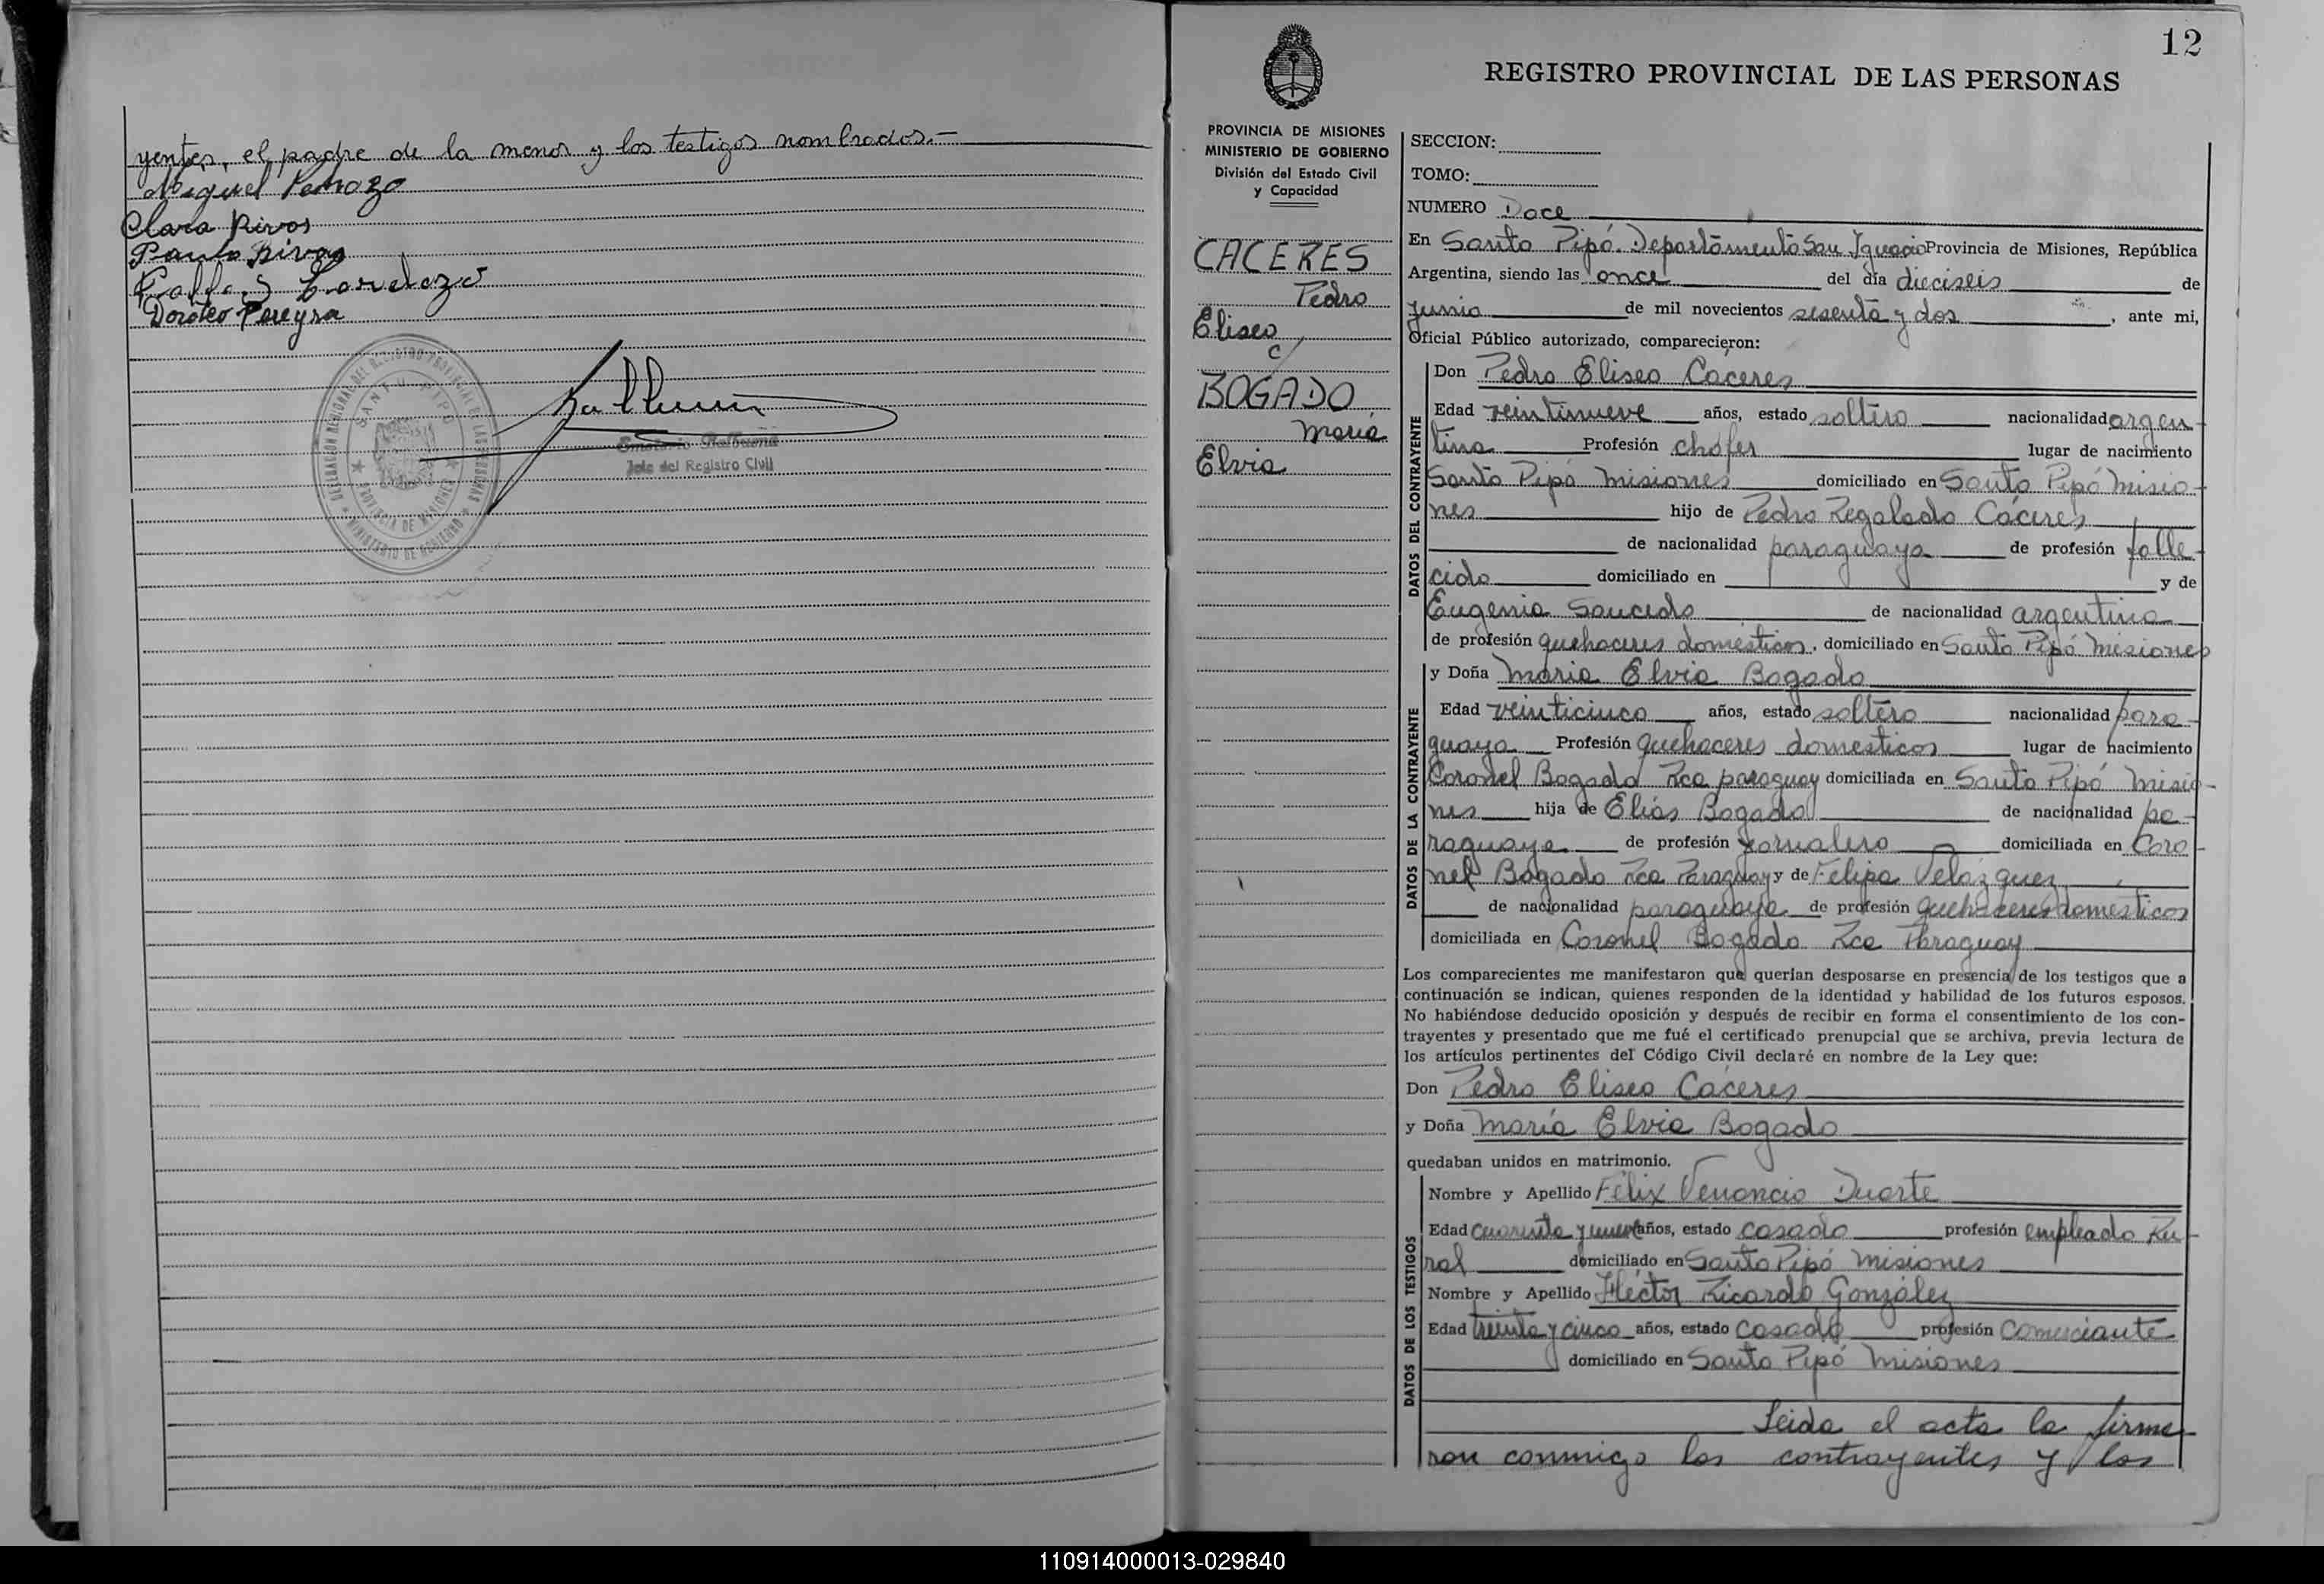 yentes, el padre de la menor y los testigos nombrados.-
Miguel Pedrozo
Clara Rivos
Paulo Rivas
Cardozo
Doroteo Pereyra
DELEGACION REGIONAL DEL REGISTRO PROVINCIAL DE LAS PERSONAS
SANTO PIPO
PROVINCIA DE MISIONES
MINISTERIO DE GOBIERNO
Balbuena
Jefe del Registro Civil
12
REGISTRO PROVINCIAL DE LAS PERSONAS
PROVINCIA DE MISIONES
MINISTERIO DE GOBIERNO
División del Estado Civil
y Capacidad
CACERES
Pedro
Eliseo
c/
BOGADO
María
Elvia
SECCION:
TOMO:
NUMERO Doce
En Santo Pipó. Departamento San Ignacio Provincia de Misiones, República
Argentina, siendo las once del día dieciseis de
junio de mil novecientos sesenta y dos, ante mi,
Oficial Público autorizado, comparecieron:
DATOS DEL CONTRAYENTE
Don Pedro Eliseo Cáceres
Edad veintinueve años, estado soltero nacionalidad argen-
tina Profesión chofer lugar de nacimiento
Santo Pipó Misiones domiciliado en Santo Pipó Misio-
nes hijo de Pedro Regalado Cáceres
de nacionalidad paraguaya de profesión falle-
cido domiciliado en y de
Eugenia Saucedo de nacionalidad argentina
de profesión quehaceres domésticos, domiciliado en Santo Pipó Misiones
DATOS DE LA CONTRAYENTE
y Doña María Elvia Bogado
Edad veinticinco años, estado soltera nacionalidad para-
guaya Profesión quehaceres domesticos lugar de nacimiento
Coronel Bogado Rca paraguay domiciliada en Santo Pipó Misio-
nes hija de Elías Bogado de nacionalidad pa-
raguaya de profesión jornalero domiciliada en Coro-
nel Bogado Rca Paraguay y de Felipa Velázquez
de nacionalidad paraguaya de profesión quehaceres domesticos
domiciliada en Coronel Bogado Rca Paraguay
Los comparecientes me manifestaron que querían desposarse en presencia de los testigos que a
continuación se indican, quienes responden de la identidad y habilidad de los futuros esposos.
No habiéndose deducido oposición y después de recibir en forma el consentimiento de los con-
trayentes y presentado que me fué el certificado prenupcial que se archiva, previa lectura de
los artículos pertinentes del Código Civil declaré en nombre de la Ley que:
Don Pedro Eliseo Cáceres
y Doña María Elvia Bogado
quedaban unidos en matrimonio.
DATOS DE LOS TESTIGOS
Nombre y Apellido Félix Venancio Duarte
Edad cuarenta y nueve años, estado casado profesión empleado Ru-
ral domiciliado en Santo Pipó Misiones
Nombre y Apellido Héctor Ricardo González
Edad treinta y cinco años, estado casado profesión comerciante
domiciliado en Santo Pipó Misiones
Leida el acta la firma-
ron conmigo los contrayentes y los
110914000013-029840